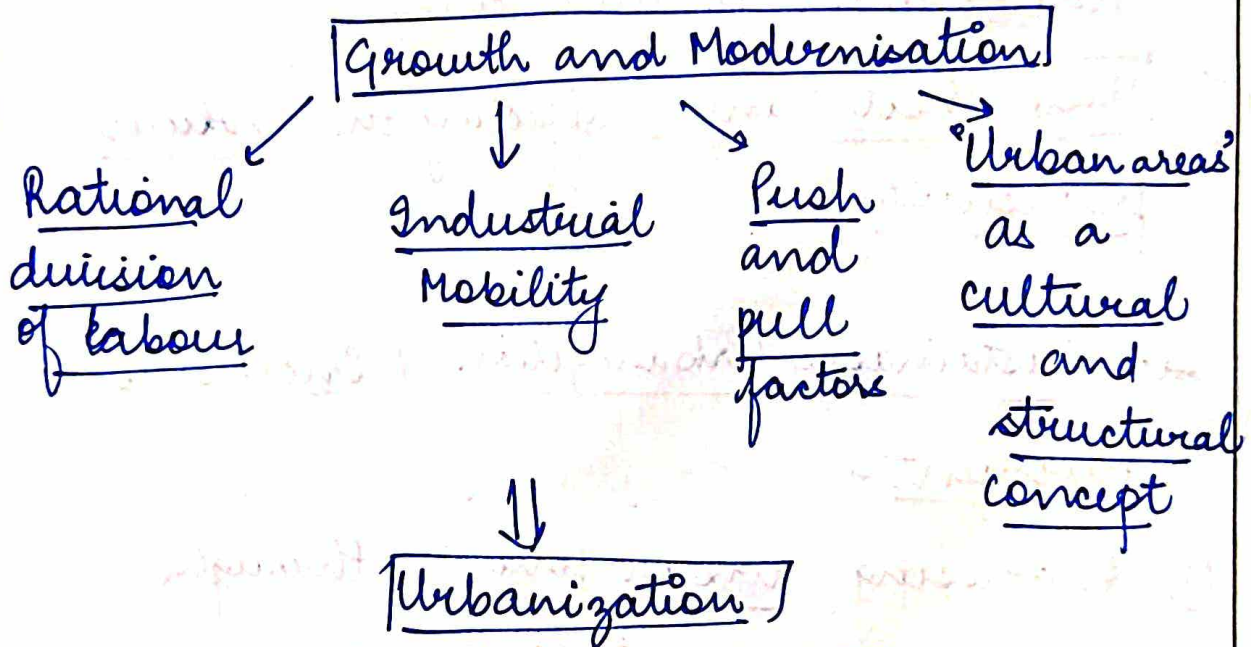 Growth and Modernisation
Rational
division
of labour
Industrial
Mobility
Push
and
pull
factors
'Urban areas'
as a
cultural
and
structural
concept
Urbanization